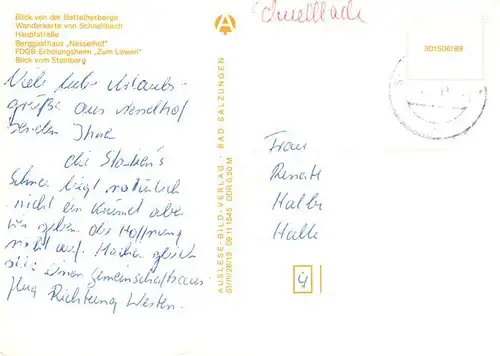 Blick von der Bettelherberge
Wanderkarte von Schnellbach
Hauptstraße
Berggasthaus „Nesselhof"
FDGB-Erholungsheim „Zum Löwen"
Blick vom Stemberg
Viele liebe Urlaubs-
grüße aus Nesselhof
senden Ihnen
die
Schnee liegt natürlich
nicht ein Krümel aber
wir geben die Hoffnung
nicht auf. Machen gleich
mit einen Gemeinschaftsaus
flug Richtung Westen.
AUSLESE-BILD-VERLAG - BAD SALZUNGEN
09 11 1645 DDR 0,20 M
Schnellbach
301506/89
Frau
Renate
Halle